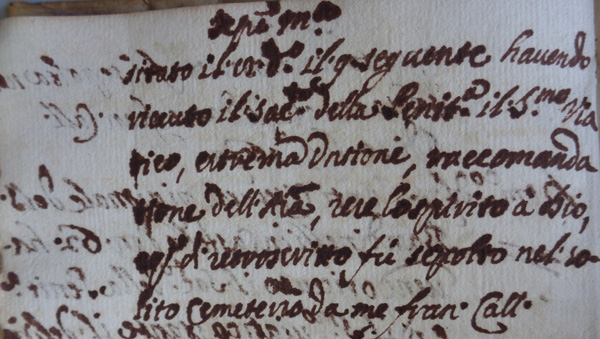 sitato il cr.to il q. seguente havendo
riceuto il Sac.to della Penit.a il S.mo Via
tico, estrema Untione, raccomanda
tione dell'A~a, rese lo spirito a Dio,
d. retroscritto fù sepolto nel so-
lito Cemeterio da me fran. Call.